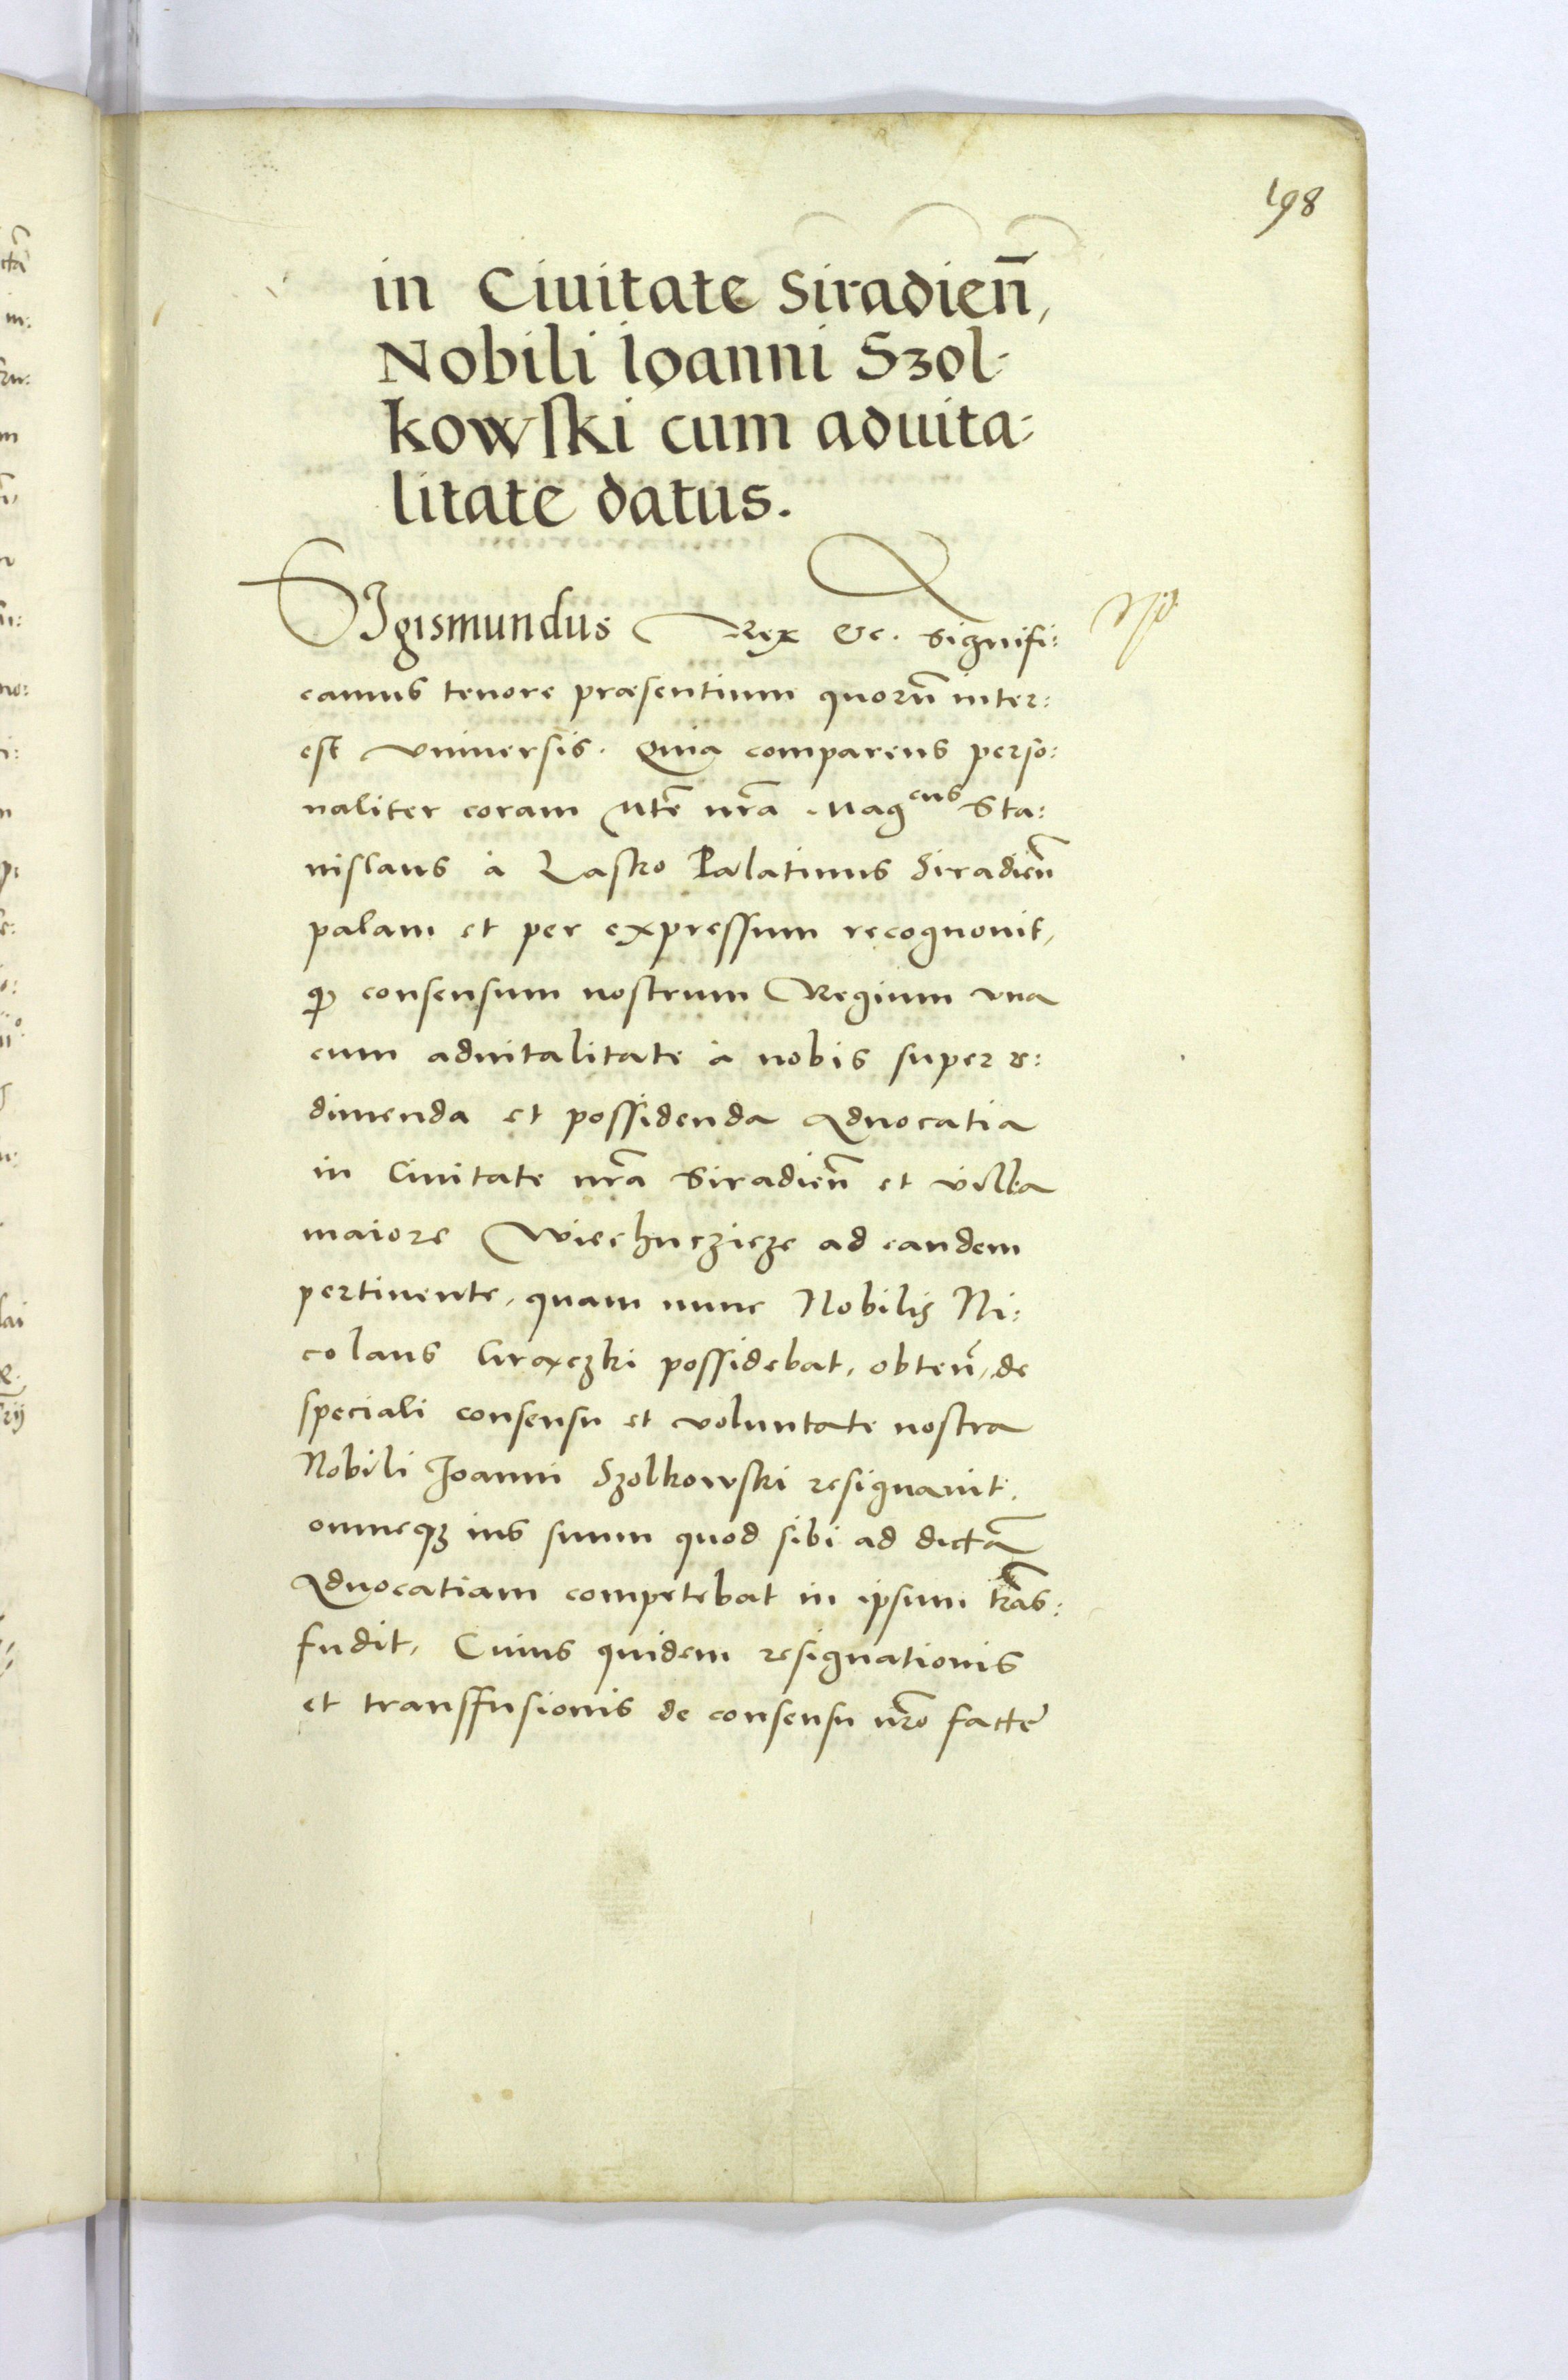 198
in Ciuitate Siradien̄,
Nobili Ioanni Szol-
kowski cum aduita-
litate datus.
Sigismundus Rex &c. Signifi:
camus tenore præsentium quorū inter:
est vniuersis. Quia comparens perso:
naliter coram Mte nrā Mag^cus Sta:
nislaus à Lasko Palatinus Siradien̄
palam et per expressum recognouit,
qͥ consensum nostrum Regium vna
cum aduitalitate à nobis super re:
dimenda et possidenda Aduocatia
in Ciuitate nrā Siradien̄ et villa
maiore Wiechuczicze ad eandem
pertinente, quam nunc Nobilis Ni:
colaus possidebat, obten̄, de
speciali consensu et voluntate nostra
Nobili Joanni Szolkowski resignauit,
omneqꝫ ius suum quod sibi ad dictā
Aduocatiam competebat in ipsum trās:
fudit, Cuius quidem resignationis
et transfusionis de consensu nrō factę